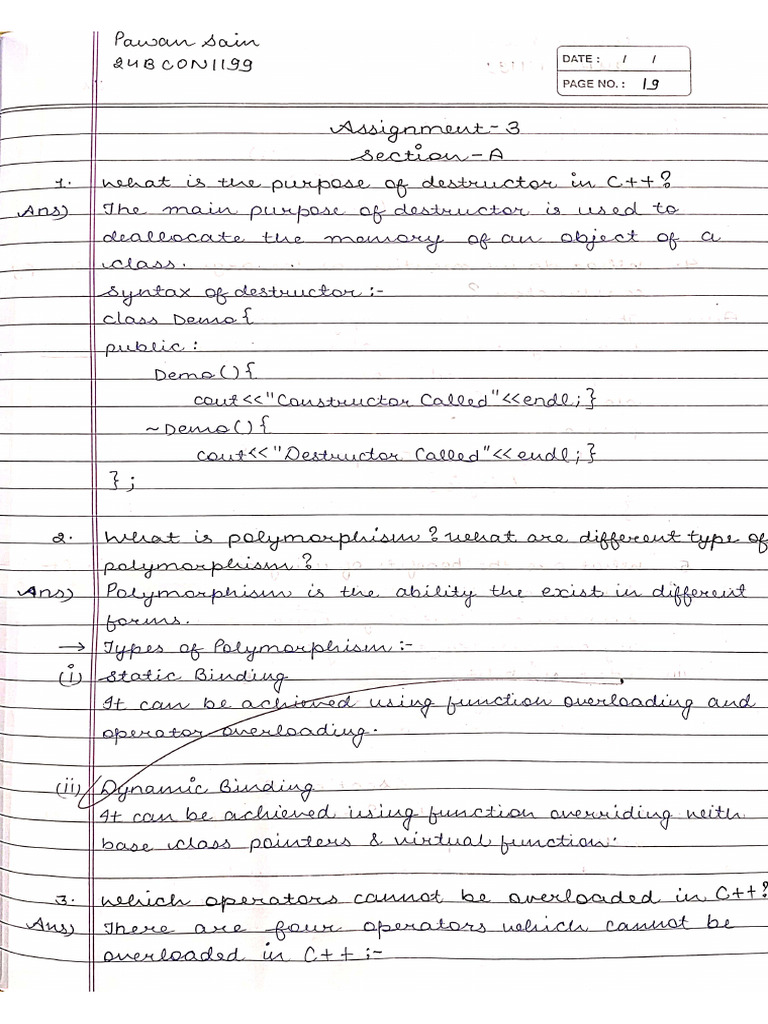 Pawan Sain
24BCON1199
DATE : / /
PAGE NO. : 19
Assignment-3
Section-A
1. What is the purpose of destructor in C++?
Ans) The main purpose of destructor is used to
deallocate the memory of an object of a
class.
Syntax of destructor :-
class Demo{
public :
Demo(){
cout<<"Constructor Called"<<endl;}
~Demo(){
cout<<"Destructor Called"<<endl;}
};
2. What is polymorphism? What are different type of
polymorphism?
Ans) Polymorphism is the ability the exist in different
forms.
→ Types of Polymorphism :-
(i) Static Binding
It can be achieved using function overloading and
operator overloading.
(ii) Dynamic Binding
It can be achieved using function overriding with
base class pointers & virtual function.
3. Which operators cannot be overloaded in C++?
Ans) There are four operators which cannot be
overloaded in C++ :-